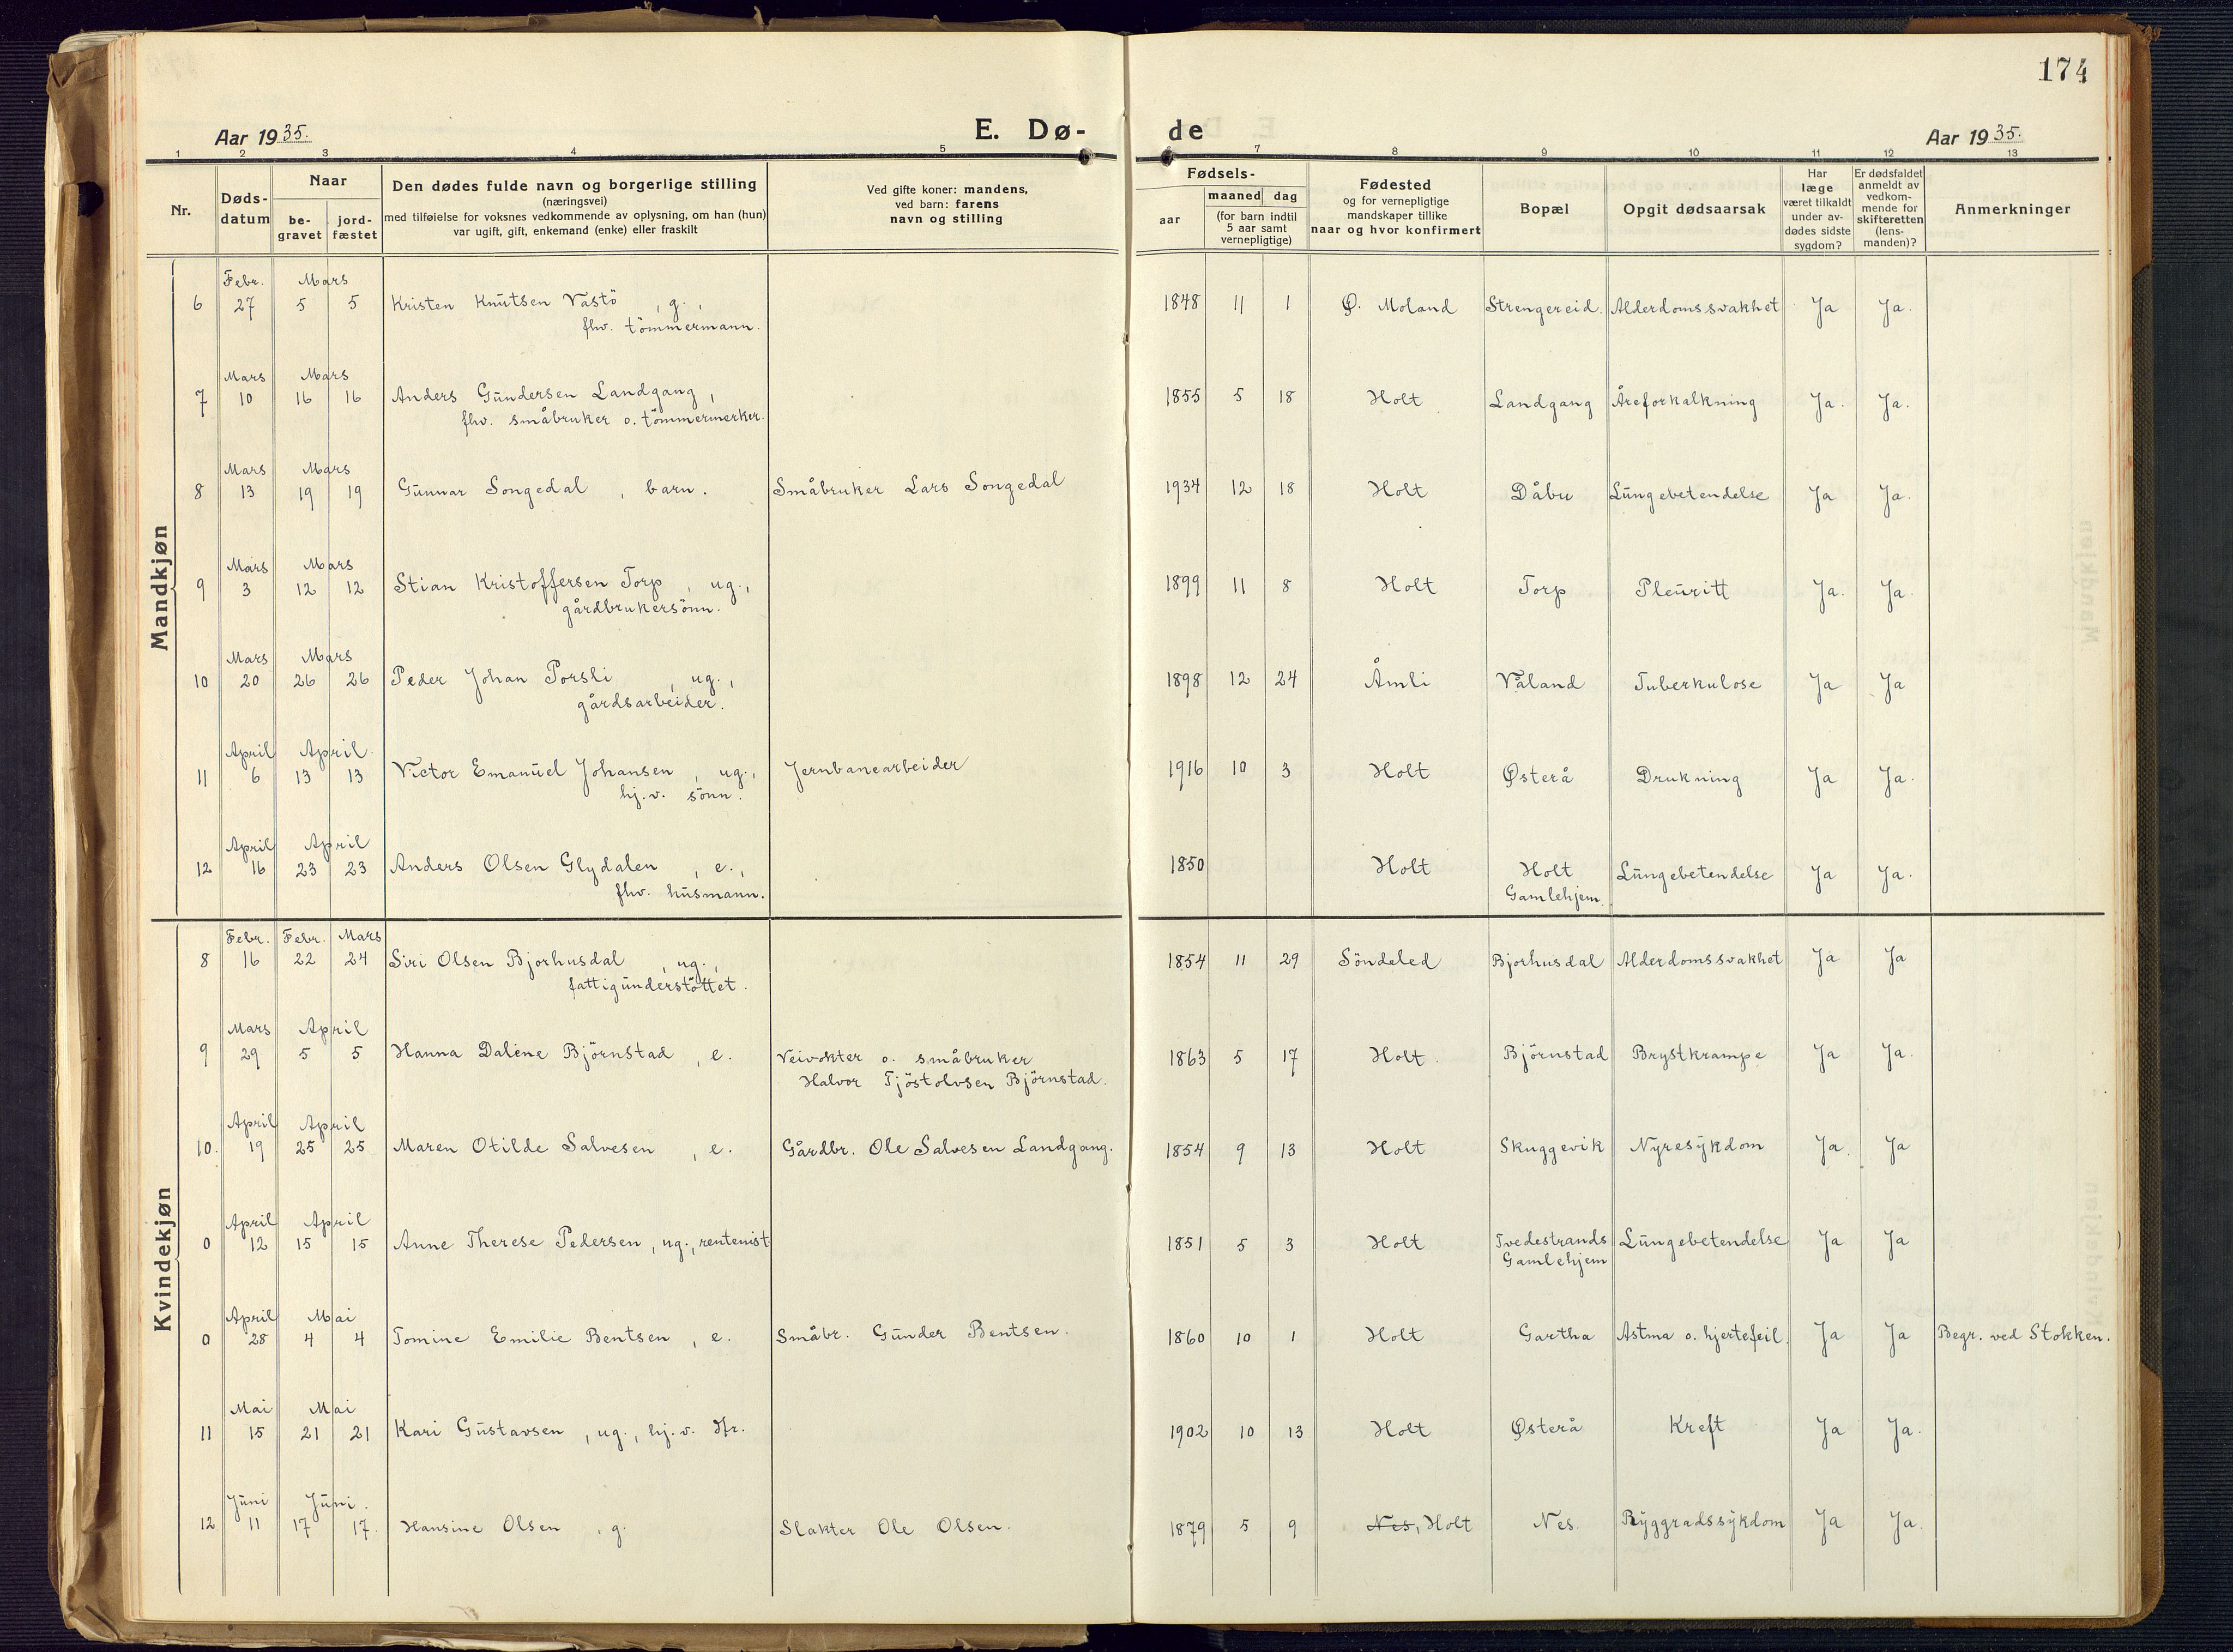 174
Aar 1935. E. Dø- de Aar 1935.
1 2 3 4 5 7 8 9 10 11 12 13
Nr.
Døds-
datum
Naar
be-
gravet
jord-
fæstet
Den dødes fulde navn og borgerlige stilling
(næringsvei)
med tilføielse for voksnes vedkommende av oplysning, om han (hun)
var ugift, gift, enkemand (enke) eller fraskilt
Ved gifte koner: mandens,
ved barn: farens
navn og stilling
Fødsels-
aar
maaned dag
(for barn indtil
5 aar samt
vernepligtige)
Fødested
og for vernepligtige
mandskaper tillike
naar og hvor konfirmert
Bopæl
Opgit dødsaarsak
Har
læge
været tilkaldt
under av-
dødes sidste
sygdom?
Er dødsfaldet
anmeldt av
vedkom-
mende for
skifteretten
(lens-
manden)?
Anmerkninger
Mandkjøn
Febr. Mars
6 27 5 5 Kristen Knutsen Vastö , g., 1848 11 1 Ø. Moland Strengereid. Alderdomssvakhet Ja Ja.
fhv. tömmermann.
Mars Mars
7 10 16 16 Anders Gundersen Landgang, 1855 5 18 Holt Landgang Åreforkalkning Ja. Ja.
fhv. småbruker o. tömmermerker.
Mars Mars
8 13 19 19 Gunnar Songedal , barn. Småbruker Lars Songedal 1934 12 18 Holt Dåbu Lungebetendelse Ja Ja.
Mars Mars
9 3 12 12 Stian Kristoffersen Torp , ug., 1899 11 8 Holt Torp Pleuritt Ja. Ja.
gårdbrukersönn.
Mars Mars
10 20 26 26 Peder Johan Porsli , ug., 1898 12 24 Åmli Våland Tuberkulose Ja Ja
gårdsarbeider.
April April.
11 6 13 13 Victor Emanuel Johansen , ug., Jernbanearbeider 1916 10 3 Holt Østerå Drukning Ja Ja.
hj.v. sönn.
April April
12 16 23 23 Anders Olsen Glydalen , e., 1850 Holt Holt Lungebetendelse Ja Ja.
fhv. husmann. Gamlehjem.
Kvindekjøn
Febr. Febr. Mars
8 16 22 24 Siri Olsen Bjorhusdal , ug., 1854 11 29 Söndeled Bjorhusdal Alderdomssvakhet Ja Ja
fattigunderstöttet.
Mars April
9 29 5 5 Hanna Dalene Björnstad , e. Veivokter o. småbruker 1863 5 17 Holt. Björnstad Brystkrampe Ja Ja.
Halvor Tjöstolvsen Björnstad.
April April
10. 19 25 25 Maren Otilde Salvesen , e. Gårdbr. Ole Salvesen Landgang. 1854 9 13 Holt Skuggevik Nyresykdom Ja. Ja
April April
0 12 15 15 Anne Therese Pedersen, ug., rentenist 1851 5 3 Holt Tvedestrands Lungebetendelse Ja Ja
Gamlehjem
April Mai
0 28 4 4 Tomine Emilie Bentsen , e. Småbr. Gunder Bentsen. 1860 10 1 Holt Gartha Astma o. hjertefeil. Ja Ja Begr. ved Stokken.
Mai Mai
11 15 21 21 Kari Gustavsen , ug., hj.v. dtr. 1902 10 13 Holt Østerå Kreft Ja Ja.
Juni Juni.
12 11 17 17. Hansine Olsen , g. Slakter Ole Olsen. 1879 5 9 Nes, Holt Nes. Ryggradssykdom Ja Ja.